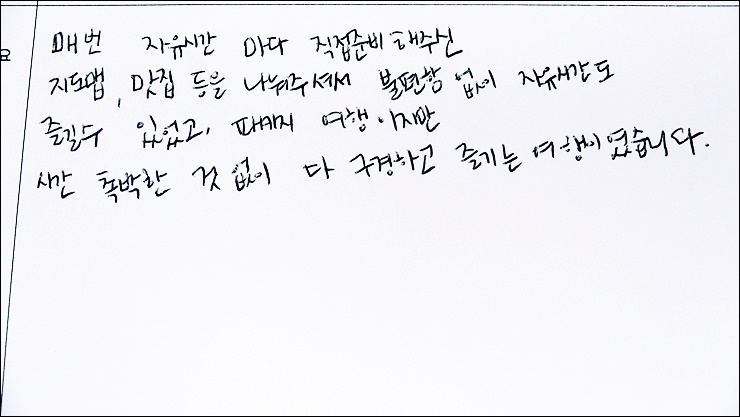 매번 자유시간 마다 직접준비해주신
지도맵, 맛집 등을 나눠주셔서 불편함 없이 자유시간도
즐길수 있었고, 패키지 여행이지만
시간 촉박한 것 없이 다 구경하고 즐기는 여행이였습니다.